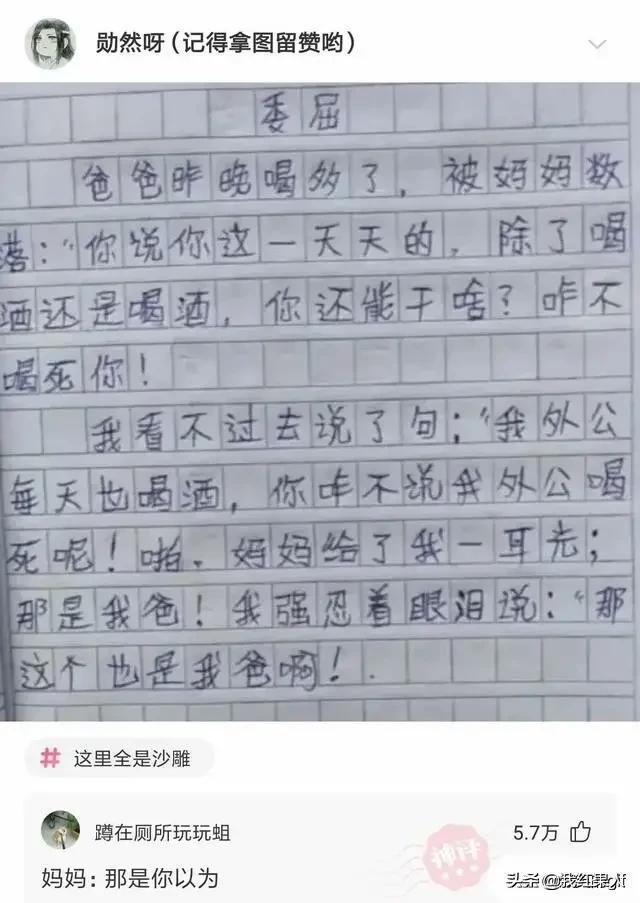 勋然呀(记得拿图留赞哟)
委屈
爸爸昨晚喝多了，被妈妈数
落："你说你这一天天的，除了喝
酒还是喝酒，你还能干啥？咋不
喝死你！
我看不过去说了句："我外公
每天也喝酒，你咋不说我外公喝
死呢！啪。妈妈给了我一耳光；
那是我爸！我强忍着眼泪说："那
这个也是我爸啊！.
# 这里全是沙雕
蹲在厕所玩玩蛆
5.7万
神评
妈妈: 那是你以为
头条